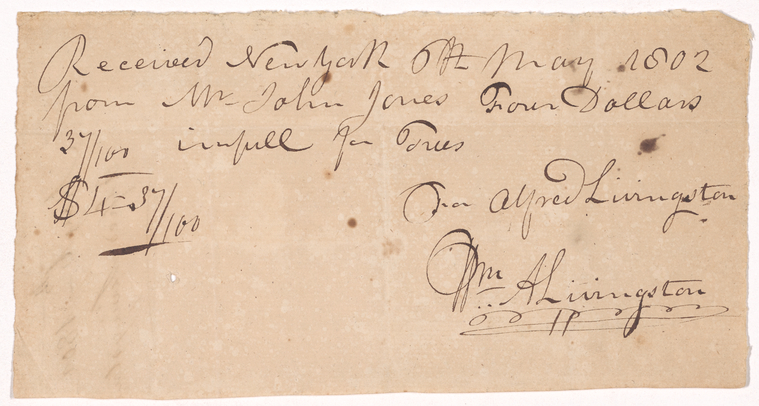 Received New York 6th May 1802
from Mr John Jones Four Dollars
37/100 in full for Trees
$4-37/100
For Alfred Livingston
Wm A Livingston